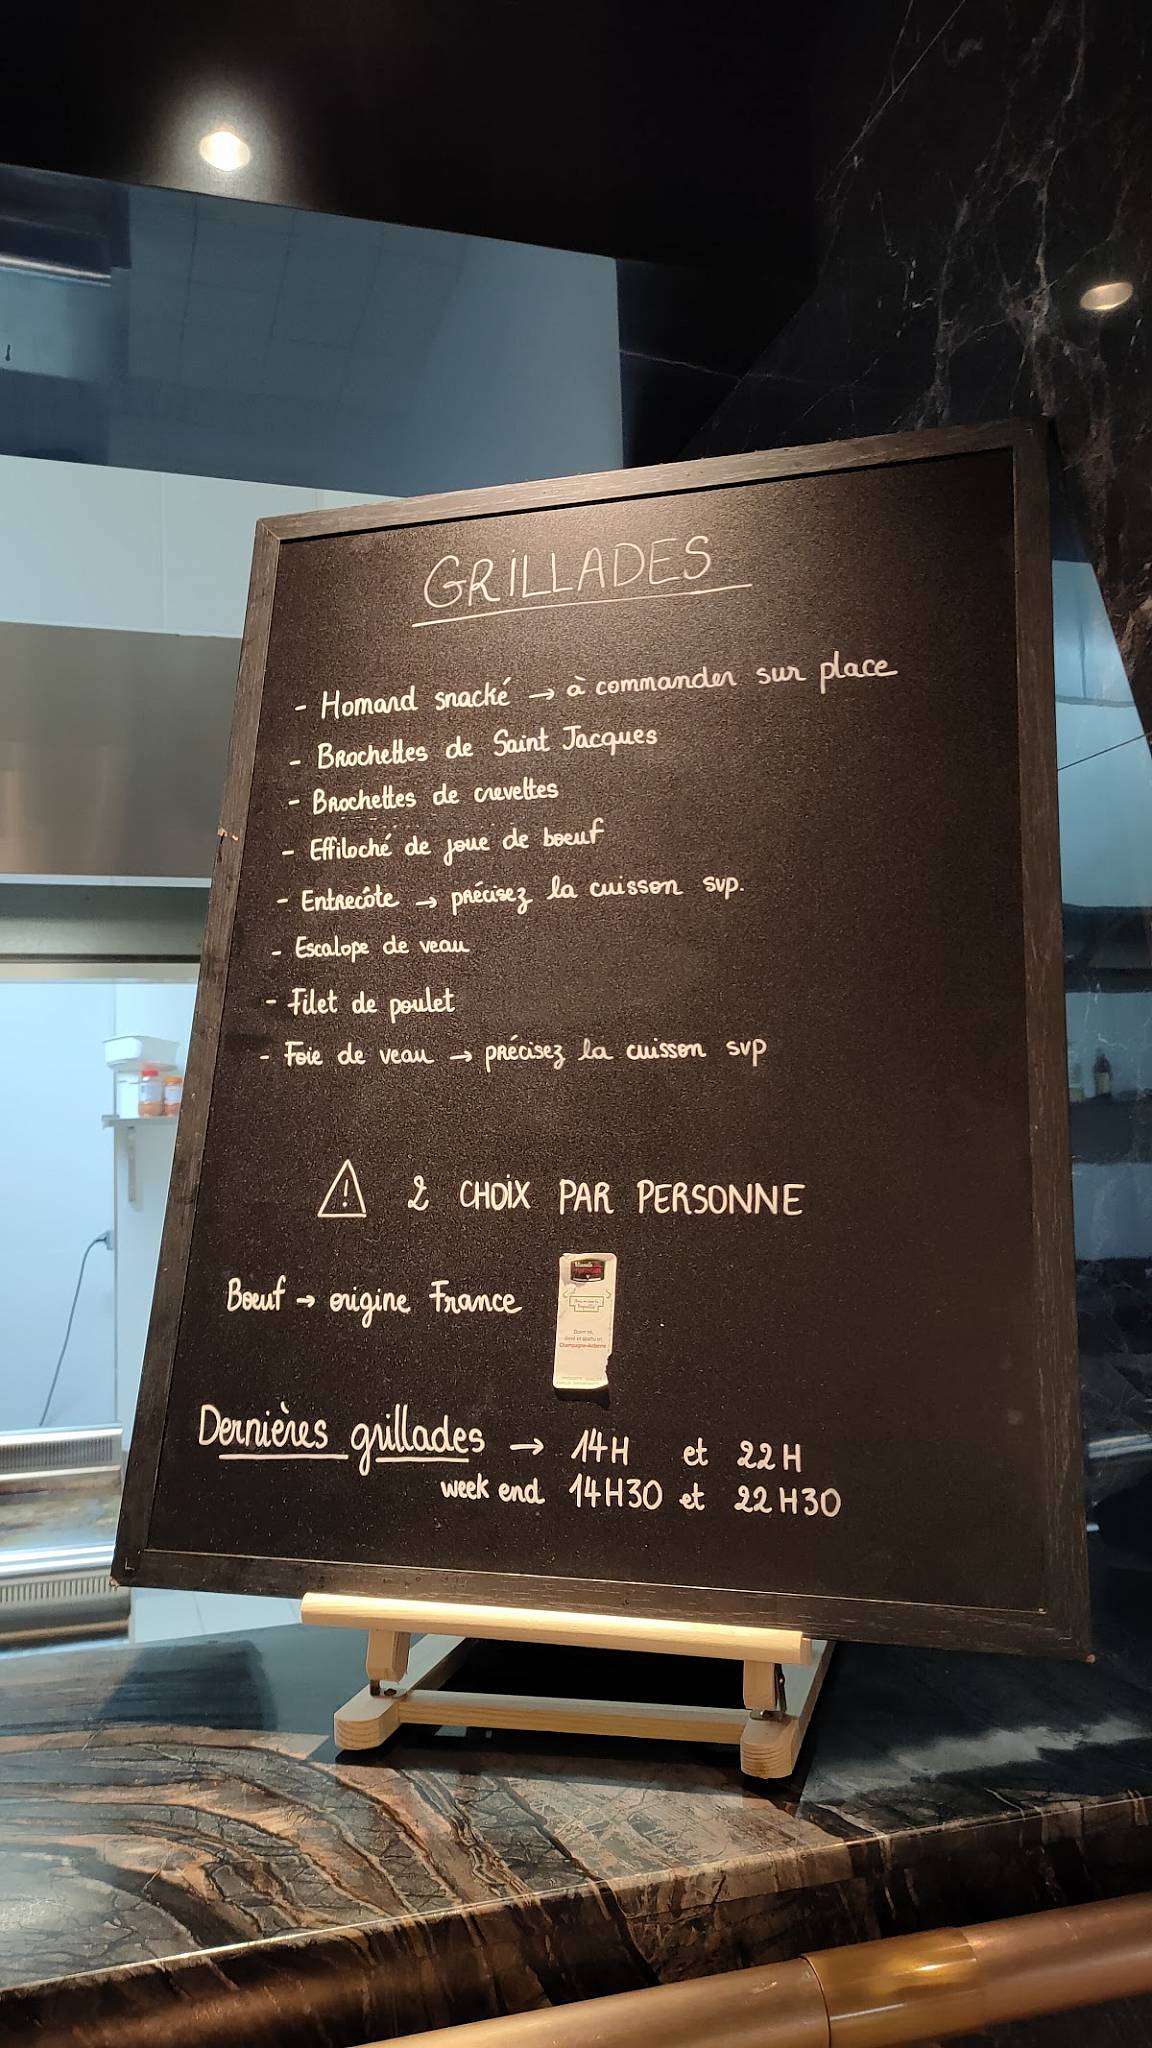 GRILLADES
- Homard snacké → à commander sur place
- Brochettes de Saint Jacques
- Brochettes de crevettes
- Effiloché de joue de boeuf
- Entrecôte → précisez la cuisson svp.
- Escalope de veau
- Filet de poulet
- Foie de veau → précisez la cuisson svp
! 2 CHOIX PAR PERSONNE
Boeuf → origine France
Champagne-Ardenne
Dernières grillades → 14H et 22H
week end 14H30 et 22H30